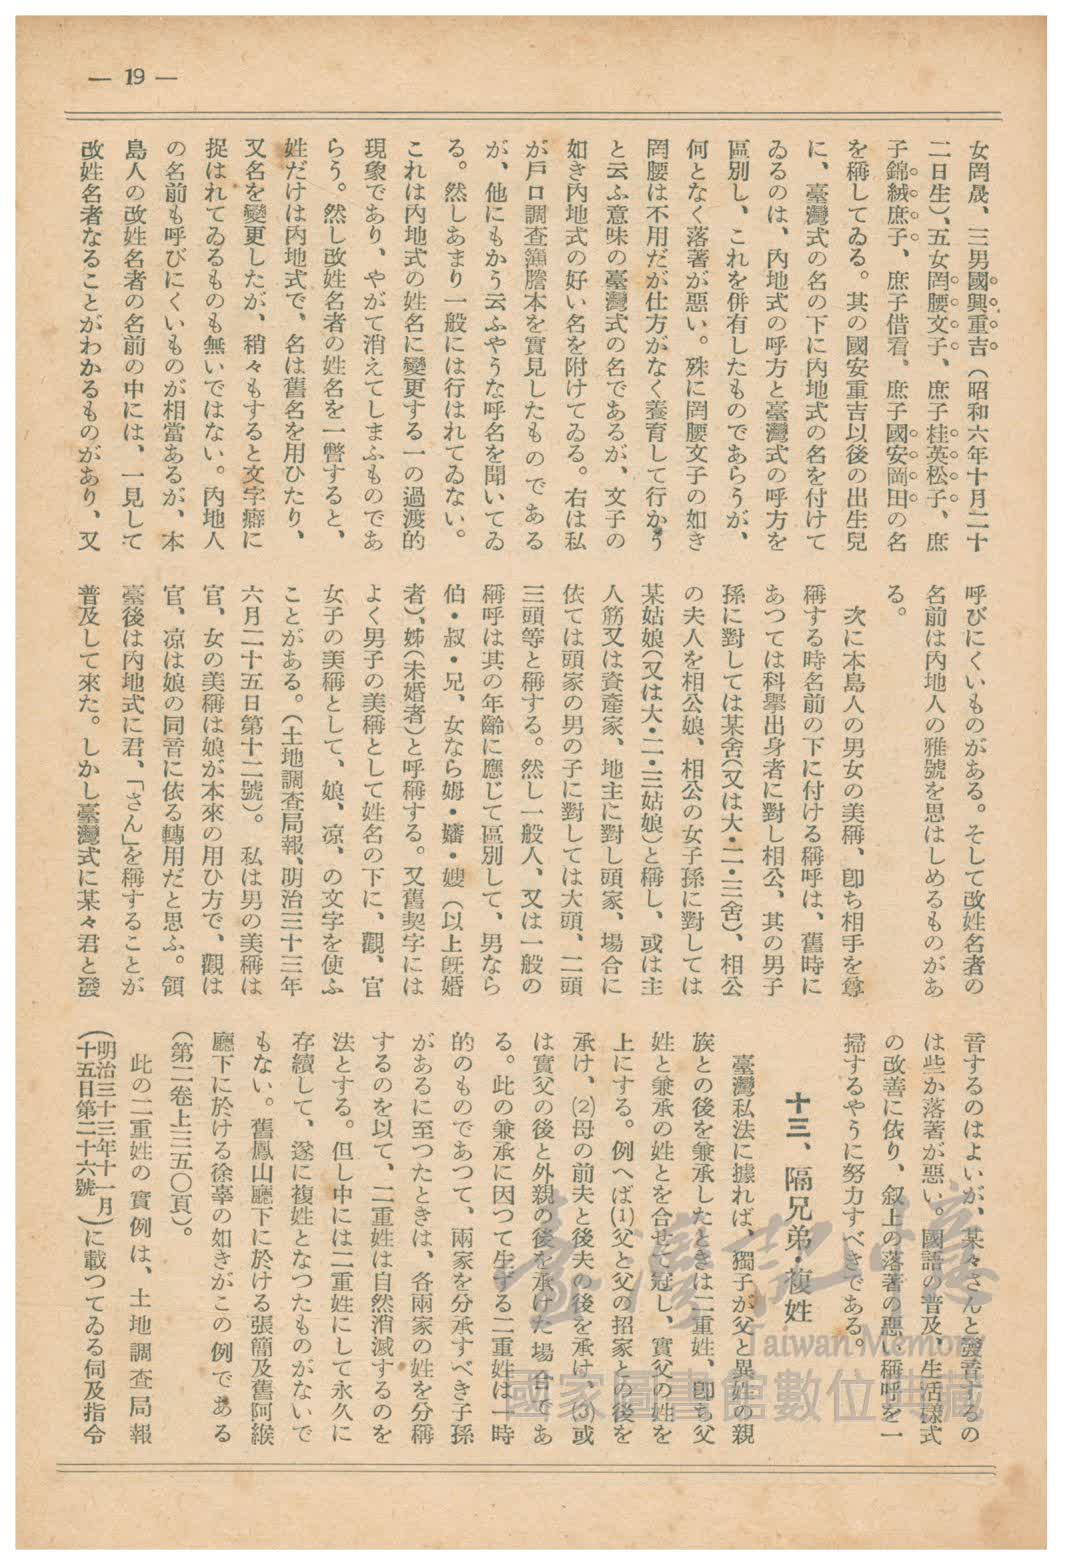 — 19 —
女罔晟、三男國興重吉（昭和六年十月二十
二日生）、五女罔腰文子、庶子桂英松子、庶
子錦絨庶子、庶子借看、庶子國安岡田の名
を稱してゐる。其の國安重吉以後の出生兒
に、臺灣式の名の下に內地式の名を付けて
ゐるのは、內地式の呼方と臺灣式の呼方を
區別し、これを併有したものであらうが、
何となく落著が惡い。殊に罔腰文子の如き
罔腰は不用だが仕方がなく養育して行かう
と云ふ意味の臺灣式の名であるが、文子の
如き內地式の好い名を附けてゐる。右は私
が戶口調査簿謄本を實見したものである
が、他にもかう云ふやうな呼名を聞いてゐ
る。然しあまり一般には行はれてゐない。
これは內地式の姓名に變更する一の過渡的
現象であり、やがて消えてしまふものであ
らう。然し改姓名者の姓名を一瞥すると、
姓だけは內地式で、名は舊名を用ひたり、
又名を變更したが、稍々もすると文字癖に
捉はれてゐるものも無いではない。內地人
の名前も呼びにくいものが相當あるが、本
島人の改姓名者の名前の中には、一見して
改姓名者なることがわかるものがあり、又
呼びにくいものがある。そして改姓名者の
名前は內地人の雅號を思はしめるものがあ
る。
次に本島人の男女の美稱、卽ち相手を尊
稱する時名前の下に付ける稱呼は、舊時に
あつては科擧出身者に對し相公、其の男子
孫に對しては某舍（又は大・二・三舍）、相公
の夫人を相公娘、相公の女子孫に對しては
某姑娘（又は大・二・三姑娘）と稱し、或は主
人筋又は資產家、地主に對し頭家、場合に
依ては頭家の男の子に對しては大頭、二頭
三頭等と稱する。然し一般人、又は一般の
稱呼は其の年齡に應じて區別して、男なら
伯・叔・兄、女なら姆・嬸・嫂（以上旣婚
者）、姊（未婚者）と呼稱する。又舊契字には
よく男子の美稱として姓名の下に、觀、官
女子の美稱として、娘、凉、の文字を使ふ
ことがある。（土地調査局報、明治三十三年
六月二十五日第十二號）。　私は男の美稱は
官、女の美稱は娘が本來の用ひ方で、觀は
官、凉は娘の同音に依る轉用だと思ふ。領
臺後は內地式に君、「さん」を稱することが
普及して來た。しかし臺灣式に某々君と發
音するのはよいが、某々さんと發音するの
は些か落著が惡い。國語の普及、生活樣式
の改善に依り、敍上の落著の惡い稱呼を一
掃するやうに努力すべきである。
十三、隔兄弟・複姓
臺灣私法に據れば、獨子が父と異姓の親
族との後を兼承したときは二重姓、卽ち父
姓と兼承の姓とを合せて冠し、實父の姓を
上にする。例へば⑴父と父の招家との後を
承け、⑵母の前夫と後夫の後を承け、⑶或
は實父の後と外親の後を承けた場合であ
る。此の兼承に因つて生ずる二重姓は一時
的のものであつて、兩家を分承すべき子孫
があるに至つたときは、各兩家の姓を分稱
するのを以て、二重姓は自然消滅するのを
法とする。但し中には二重姓にして永久に
存續して、遂に複姓となつたものがないで
もない。舊鳳山廳下に於ける張簡及舊阿緱
廳下に於ける徐辜の如きがこの例である
（第二卷上三五〇頁）。
此の二重姓の實例は、土地調査局報
（明治三十三年十一月
十五日第二十六號）に載つてゐる伺及指令
臺灣記憶
Taiwan Memory
國家圖書館數位典藏